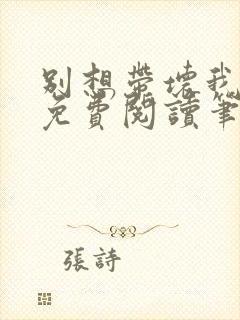 别想带坏我
免費閱讀筆
張詩